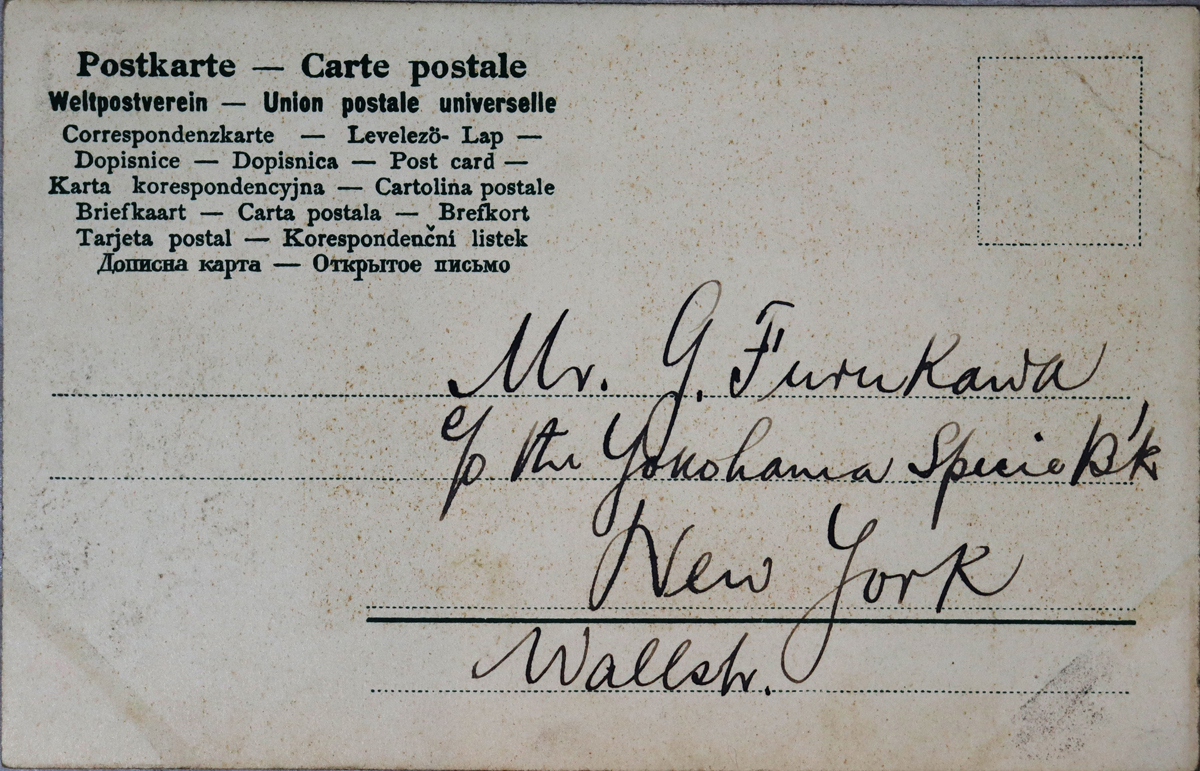 Postkarte — Carte postale
Weltpostverein — Union postale universelle
Correspondenzkarte — Levelező- Lap —
Dopisnice — Dopisnica — Post card —
Karta korespondencyjna — Cartolina postale
Briefkaart — Carta postala — Brefkort
Tarjeta postal — Korespondenční listek
Дописна карта — Открытое письмо
Mr. G. Furukawa
c/o the Yokohama Specie B'k
New York
Wallstr.